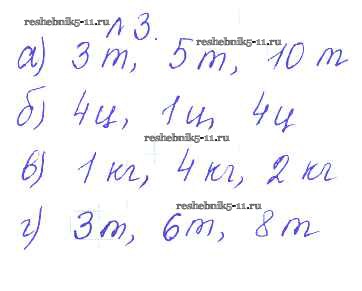 reshebnik5-11.ru
№ 3.
reshebnik5-11.ru
а) 3 т, 5 т, 10 т
б) 4 ц, 1 ц, 4 ц
reshebnik5-11.ru
в) 1 кг, 4 кг, 2 кг
reshebnik5-11.ru
г) 3 т, 6 т, 8 т